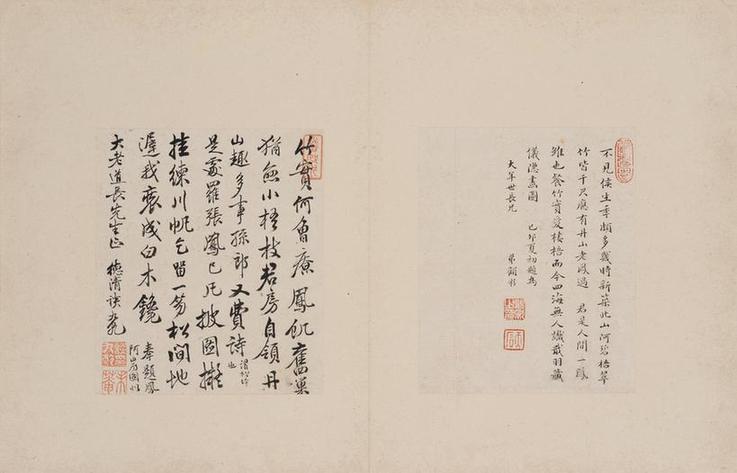 不見侯生季頗多幾時新築此山河碧梧翠
竹皆千尺應有丹山老鳳過 君是人間一鳳
雛也餐竹實棲梧而今四海無人識戢羽藏
儀漫畫圖 己卯夏初題為
大年世長兄 弟
竹實何曾療鳳飢舊巢
猶無小梧枝君房自領丹
山趣多事孫郎又費詩
是處羅張鳳已披圖擬
挂練川帆乞留一笏松間地
遲我裹成白木鑱
大老道長先生正 德清談
奉題鳳
阿山房圖